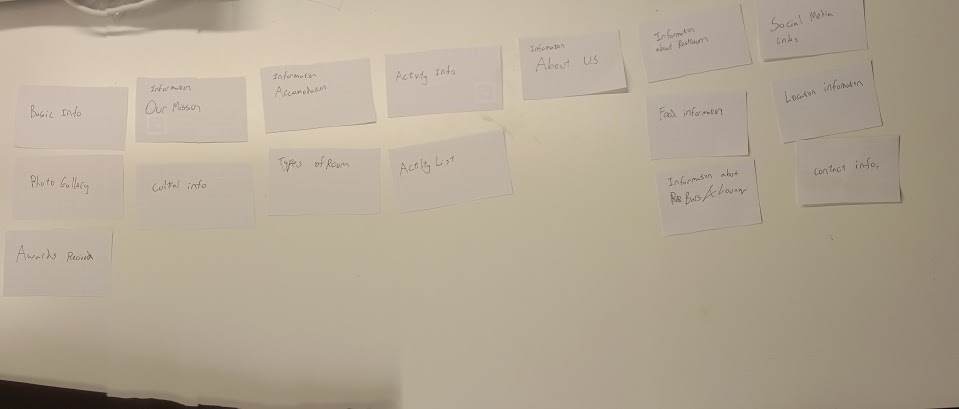 Basic Info
Photo Gallery
Awards
Information
Our Mission
info
Information
Types of Room
Activity Info
Activity List
Information
About US
Information
about
Food information
Information about
Bars & Lounge
Social Media
Links
Location information
Contact info.